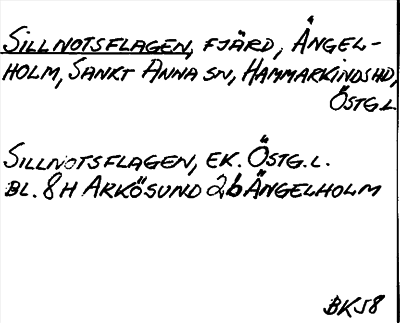 SILLNOTSFLAGEN, FJÄRD, ÄNGEL-
HOLM, SANKT ANNA SN, HAMMARKINDS HD,
ÖSTG.L
SILLNOTSFLAGEN, EK. ÖSTG.L.
BL. 8H ARKÖSUND 2b ÄNGELHOLM
BK58